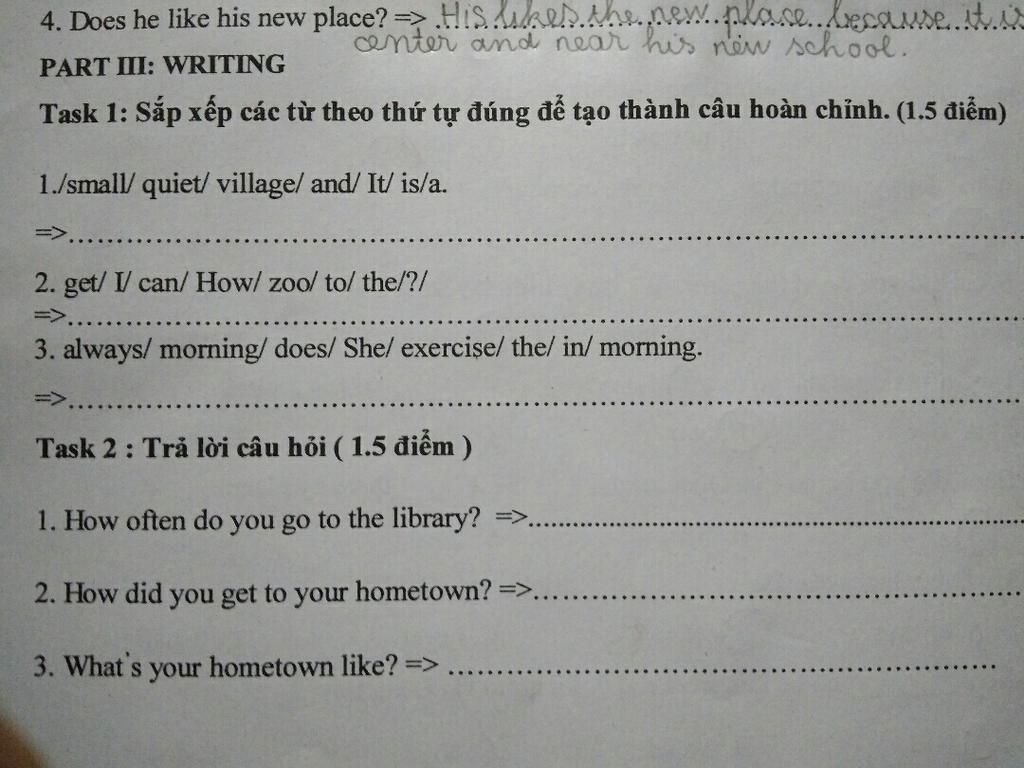 4. Does he like his new place? => His likes the new place because it is
center and near his new school.
PART III: WRITING
Task 1: Sắp xếp các từ theo thứ tự đúng để tạo thành câu hoàn chỉnh. (1.5 điểm)
1./small/ quiet/ village/ and/ It/ is/a.
=>................................................................
2. get/ I/ can/ How/ zoo/ to/ the/?/
=>................................................................
3. always/ morning/ does/ She/ exercise/ the/ in/ morning.
=>................................................................
Task 2 : Trả lời câu hỏi ( 1.5 điểm )
1. How often do you go to the library? =>................................................................
2. How did you get to your hometown? =>................................................
3. What's your hometown like? => ................................................